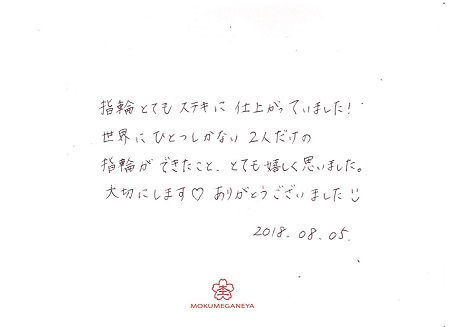 指輪とても ステキに 仕上がっていました!
世界に ひとつしかない 2人だけの
指輪が できたこと、とても嬉しく思いました。
大切にします♡ ありがとうございました
2018.08.05.
MOKUMEGANEYA